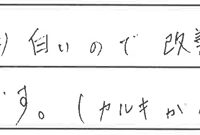 白いので改善
す。(カルキが